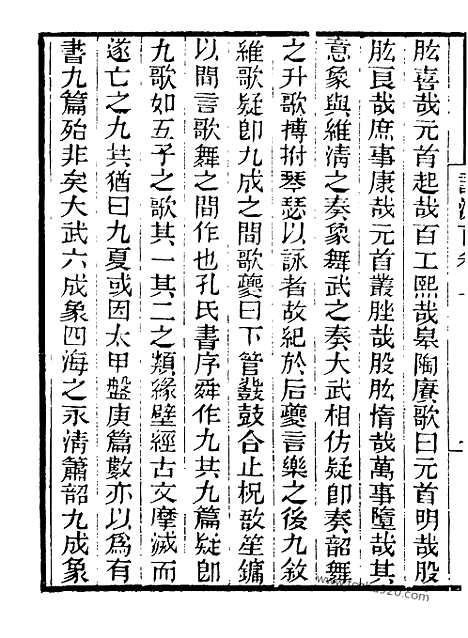 肱喜哉元首起哉百工熙哉皋陶賡歌曰元首明哉股
肱良哉庶事康哉元首叢脞哉股肱惰哉萬事墮哉其
意象與維清之奏象舞武之奏大武相仿疑卽奏韶舞
之升歌搏拊琴瑟以詠者故紀於后夔言樂之後九敘
維歌疑卽九成之間歌夔曰下管鼗鼓合止柷敔笙鏞
以間言歌舞之間作也孔氏書序舜作九共九篇疑卽
九歌如五子之歌其一其二之類緣壁經古文摩滅而
遂亡之九共猶曰九夏或因太甲盤庚篇數亦以爲有
書九篇殆非矣大武六成象四海之永淸簫韶九成象